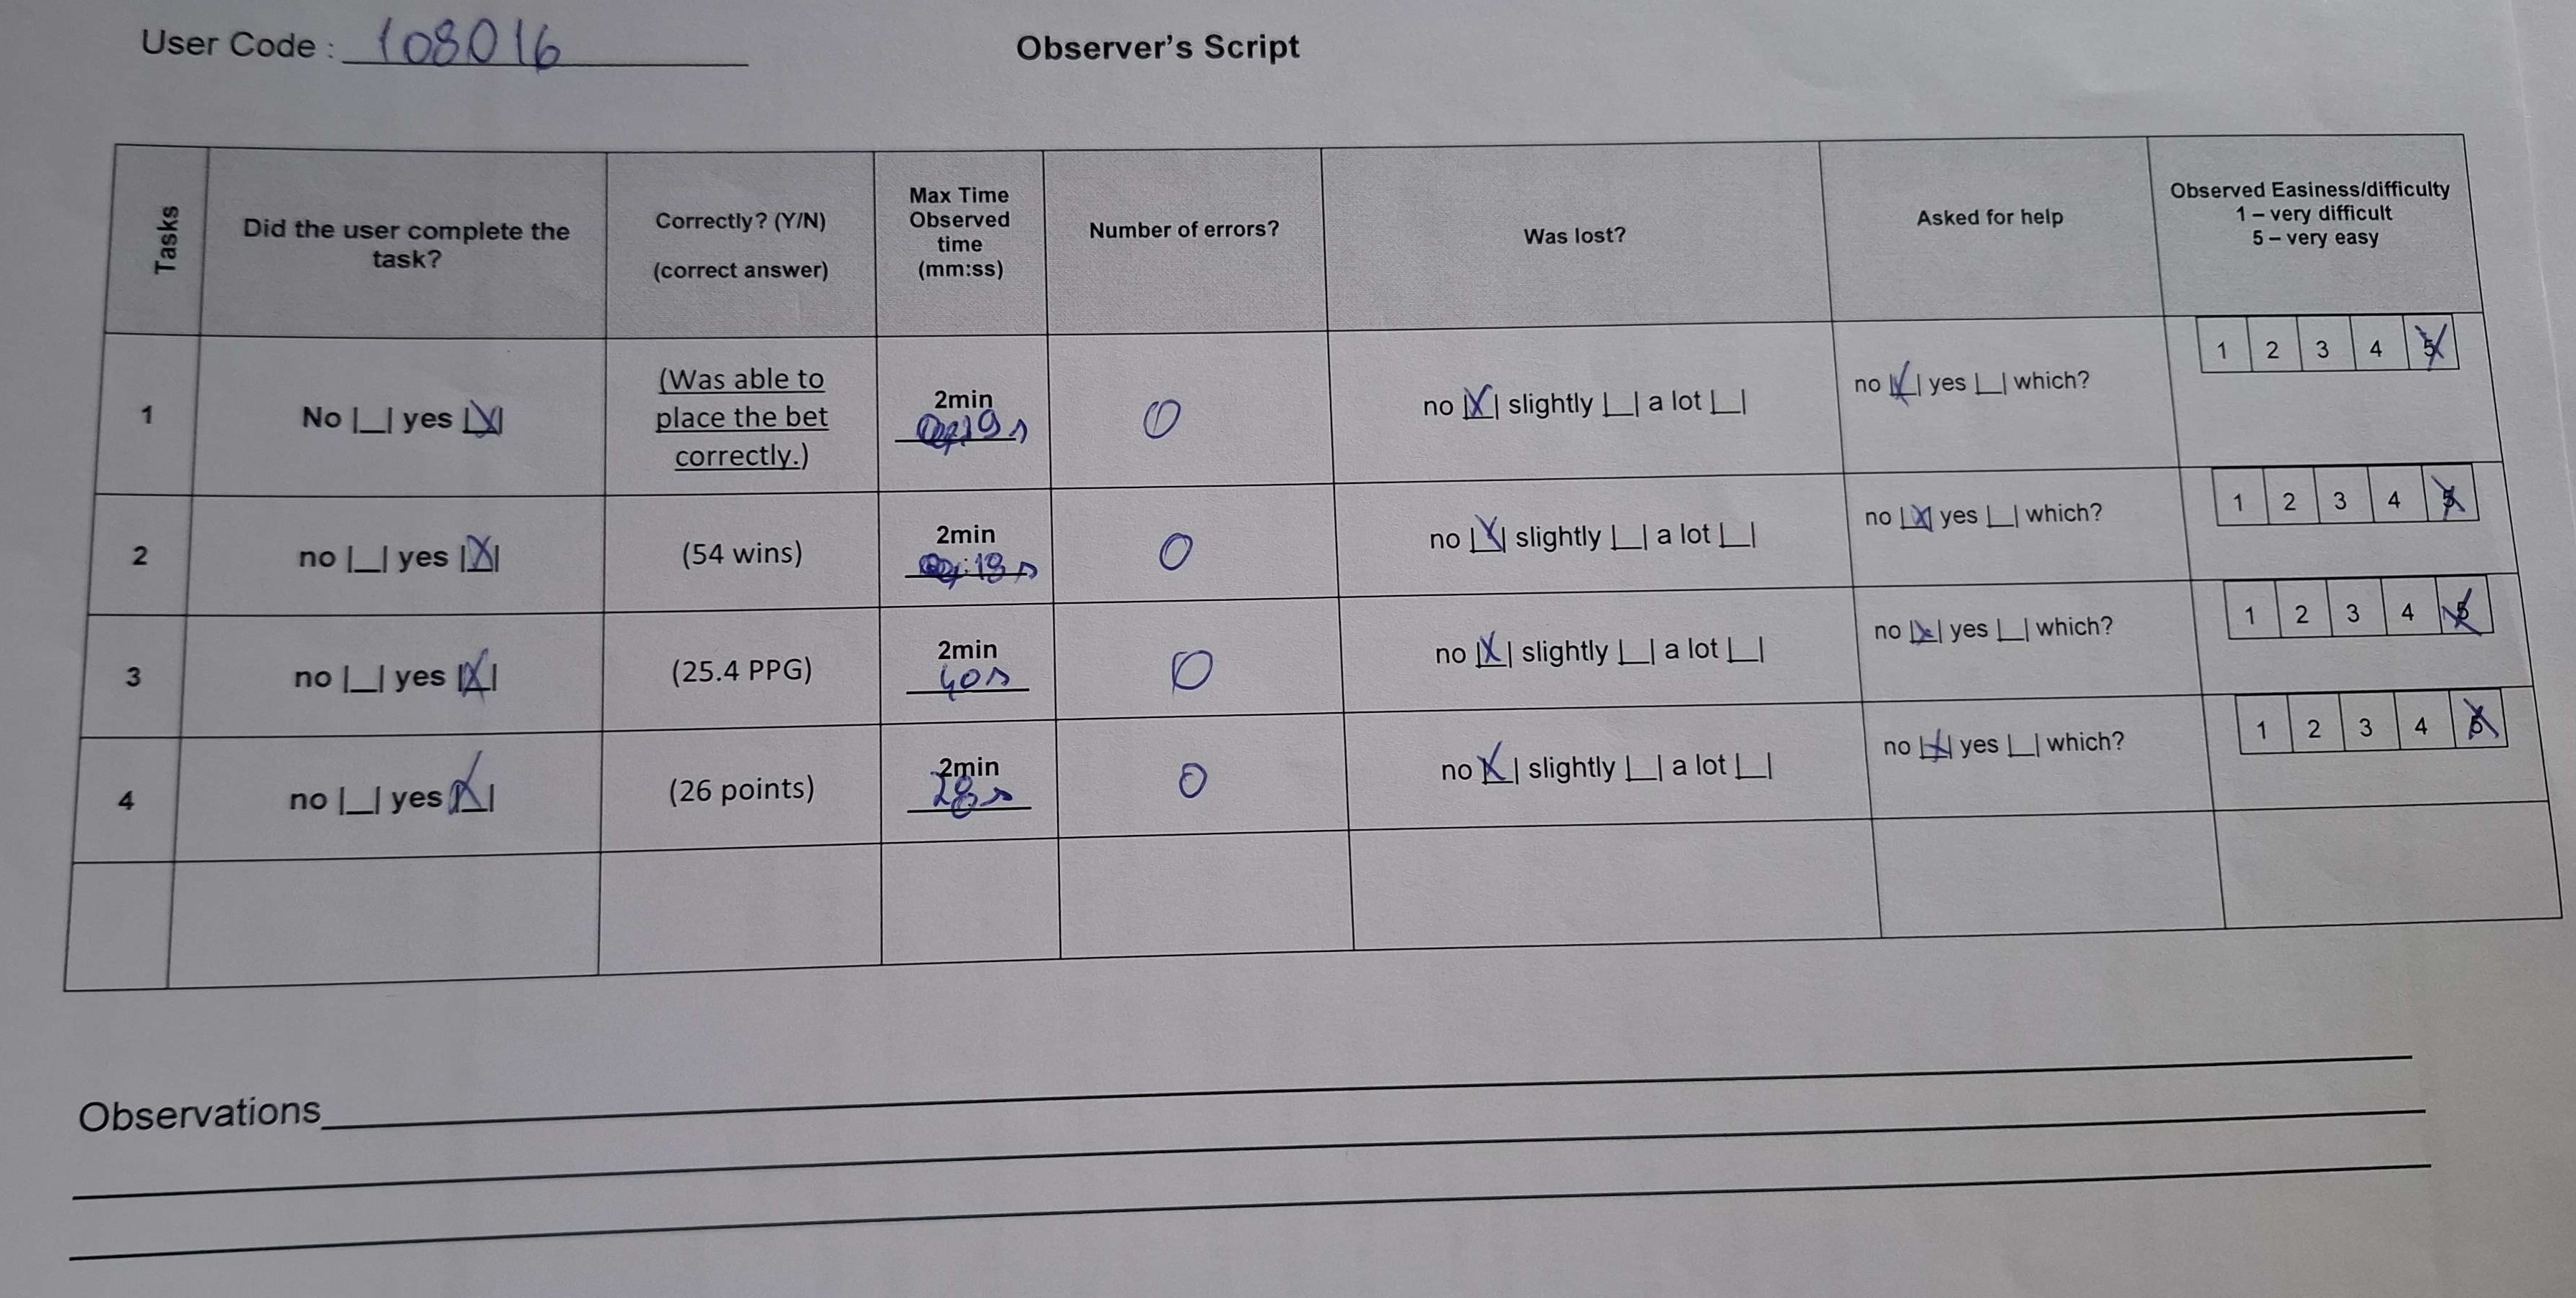 User Code : 108016
Observer's Script
Tasks
Did the user complete the
task?
Correctly? (Y/N)
(correct answer)
Max Time
Observed
time
(mm:ss)
Number of errors?
Was lost?
Asked for help
Observed Easiness/difficulty
1 – very difficult
5 – very easy
1
No |_| yes |X|
(Was able to
place the bet
correctly.)
2min
19s
0
no |X| slightly |_| a lot |_|
no |X| yes |_| which?
1 2 3 4 5
2
no |_| yes |X|
(54 wins)
2min
:18s
0
no |X| slightly |_| a lot |_|
no |X| yes |_| which?
1 2 3 4 5
3
no |_| yes |X|
(25.4 PPG)
2min
40s
0
no |X| slightly |_| a lot |_|
no |X| yes |_| which?
1 2 3 4 5
4
no |_| yes |X|
(26 points)
2min
28s
0
no |X| slightly |_| a lot |_|
no |X| yes |_| which?
1 2 3 4 5
Observations